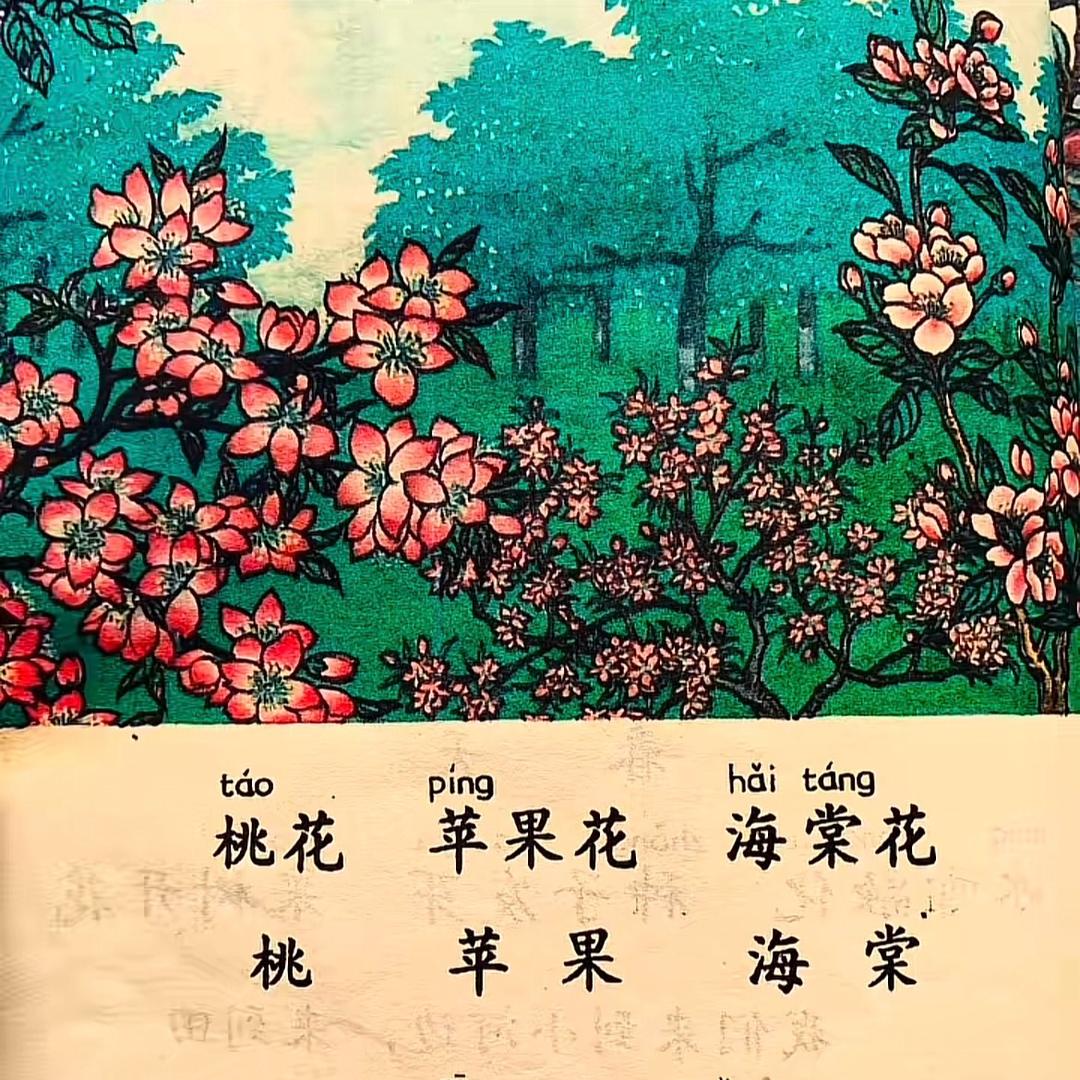 táo píng hǎi táng
桃花 苹果花 海棠花
桃 苹果 海棠